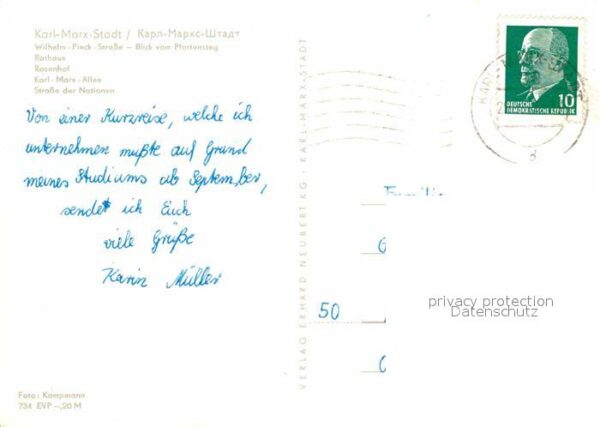 Karl-Marx-Stadt / Карл-Маркс-Штадт
Wilhelm-Pieck-Straße – Blick vom Pfortensteg
Rathaus
Rosenhof
Karl-Marx-Allee
Straße der Nationen
Von einer Kurzreise, welche ich
unternehmen mußte auf Grund
meines Studiums ab September,
sendet ich Euch
viele Grüße
Karin Müller
Foto: Kampmann
734 EVP –,20 M
VERLAG ERHARD NEUBERT KG · KARL-MARX-STADT
10
DEUTSCHE
DEMOKRATISCHE REPUBLIK
50
privacy protection
Datenschutz